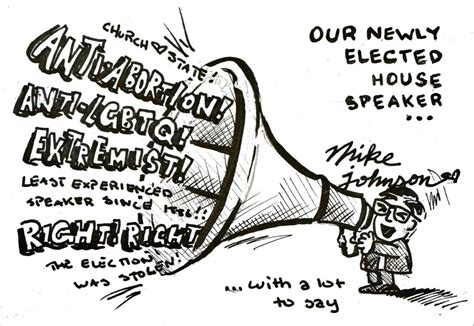 CHURCH ♡ STATE!
ANTI-ABORTION!
ANTI-LGBTQ!
EXTREMIST!
LEAST EXPERIENCED
SPEAKER SINCE
RIGHT! RIGHT
THE ELECTION
WAS STOLEN!
OUR NEWLY
ELECTED
HOUSE
SPEAKER
...
Mike
Johnson
...with a lot
to say